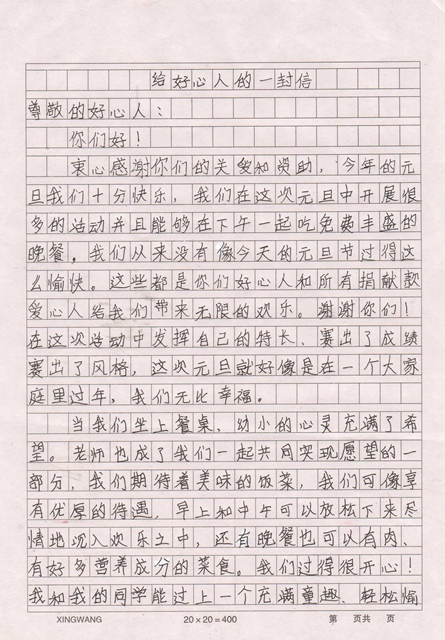 给好心人的一封信
尊敬的好心人：
你们好！
衷心感谢你们的关爱和资助，今年的元
旦我们十分快乐，我们在这次元旦中开展很
多的活动并且能够在下午一起吃免费丰盛的
晚餐。我们从来没有像今天的元旦节过得这
么愉快。这些都是你们好心人和所有捐献款
爱心人给我们带来无限的欢乐。谢谢你们！
在这次活动中发挥自己的特长、赛出了成绩
赛出了风格，这次元旦就好像是在一个大家
庭里过年，我们无比幸福。
当我们坐上餐桌、幼小的心灵充满了希
望。老师也成了我们一起共同实现愿望的一
部分，我们期待着美味的饭菜，我们可像享
有优厚的待遇，早上和中午可以放松下来尽
情地沉入欢乐之中，还有晚餐也可以有肉、
有好多营养成分的菜食。我们过得很开心！
我和我的同学能过上一个充满童趣、轻松愉
XINGWANG 20×20=400 第 页共 页